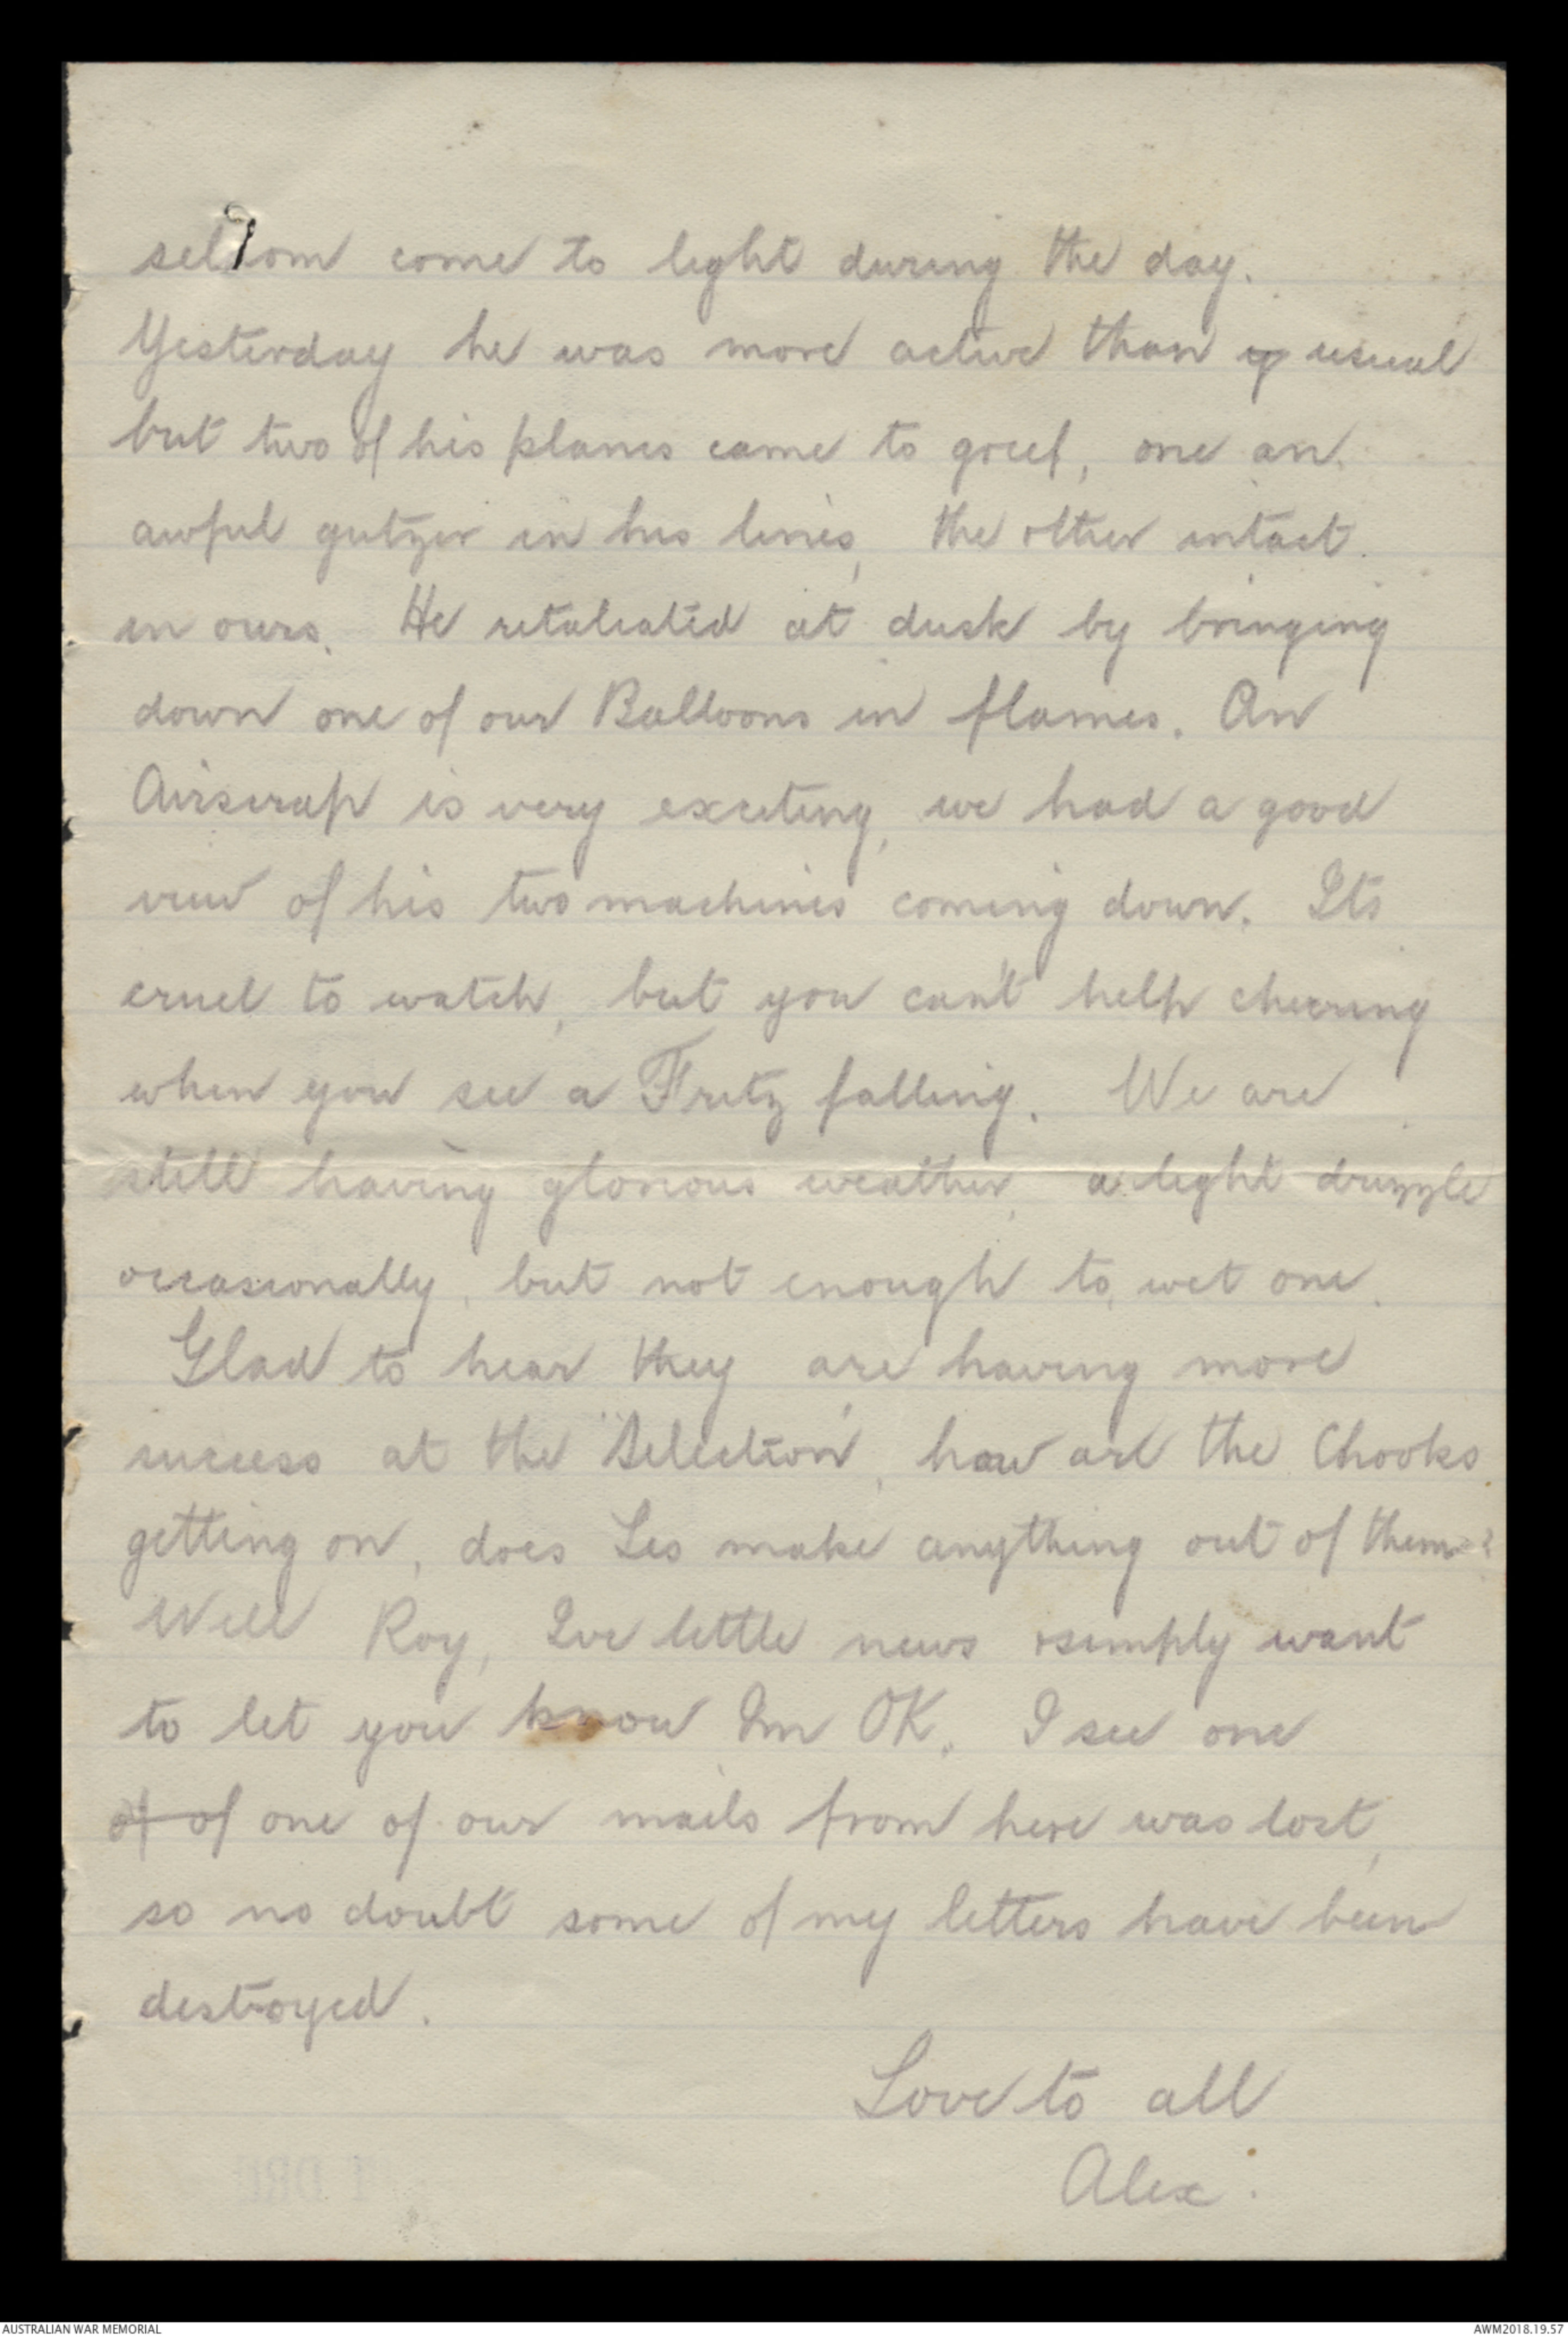 seldom come to light during the day.
Yesterday he was more active than usual
but two of his planes came to grief, one an
awful gutzer in his lines, the other intact
in ours. He retaliated at dusk by bringing
down one of our Balloons in flames. An
Airscrap is very exciting, we had a good
view of his two machines coming down. Its
cruel to watch, but you can't help cheering
when you see a Fritz falling. We are
still having glorious weather, a light drizzle
occasionally, but not enough to wet one.
Glad to hear they are having more
success at the "Selection, how are the Chooks
getting on, does Les make anything out of them?
Well Roy, Ive little news simply want
to let you know Im OK. I see one
of of one of our mails from here was lost,
so no doubt some of my letters have been
destroyed.
Love to all
Alex.
AUSTRALIAN WAR MEMORIAL
AWM2018.19.57